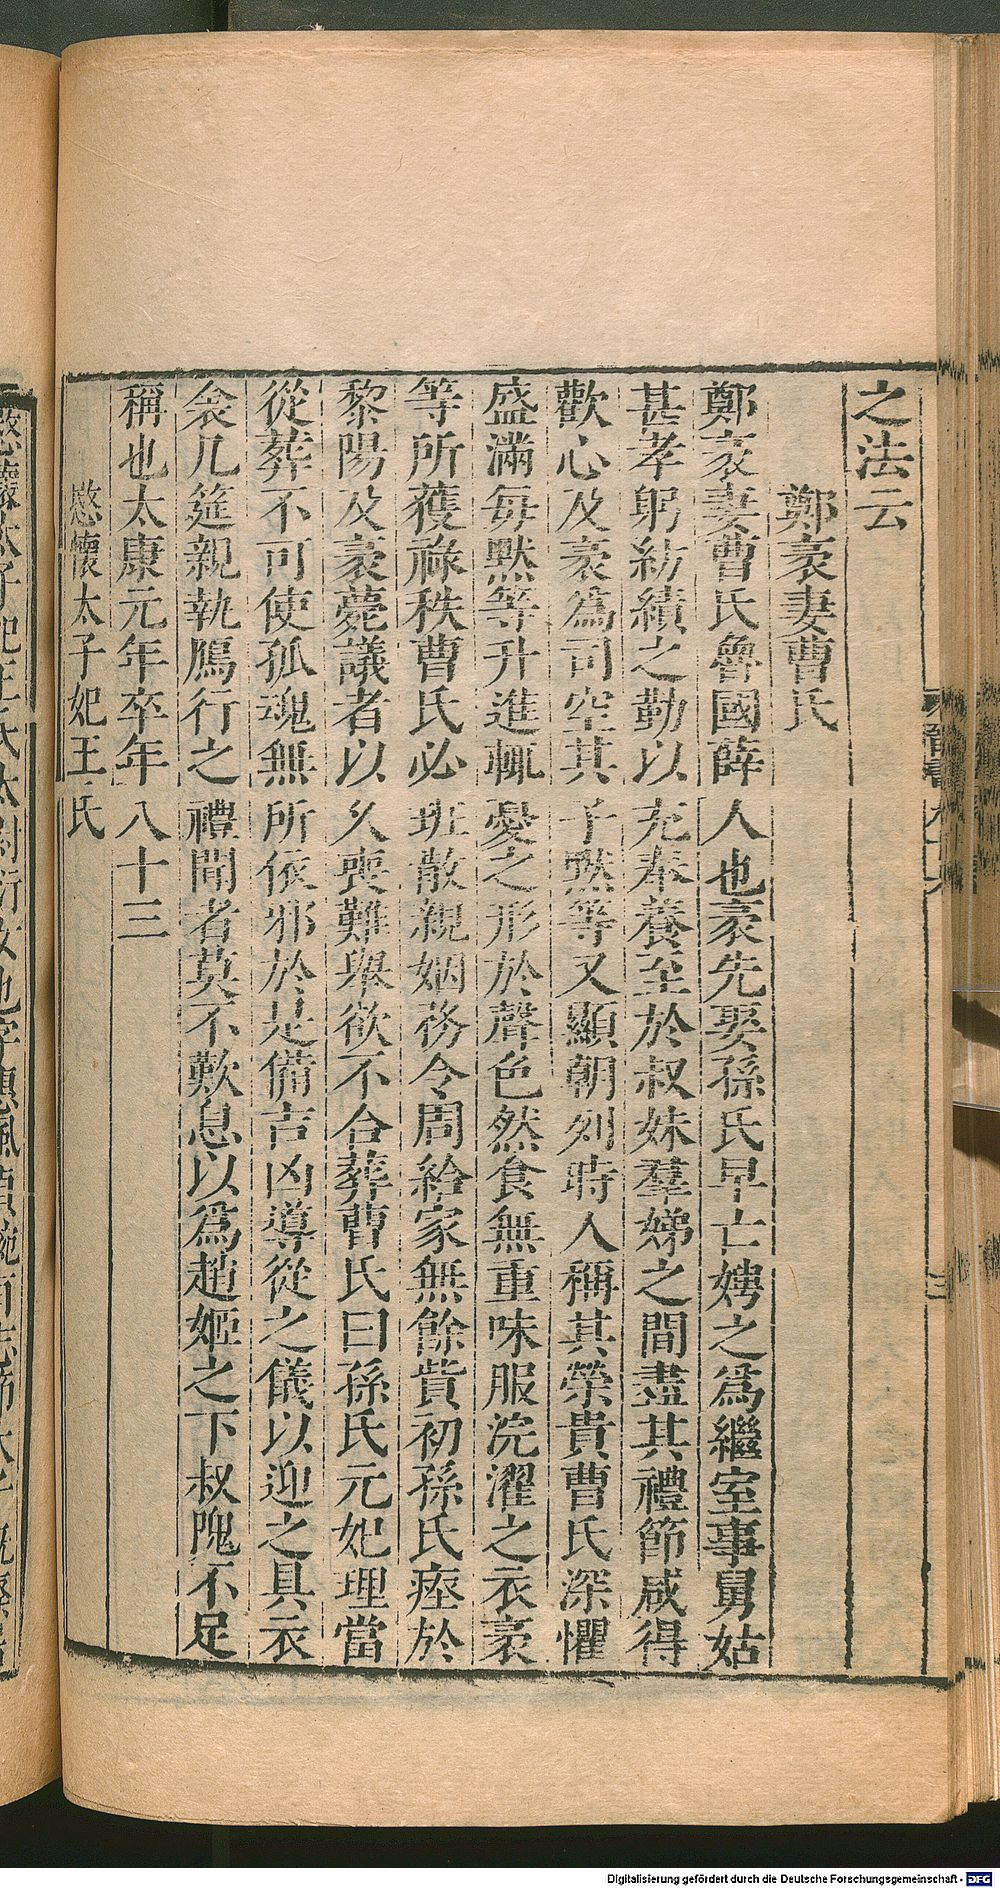 之法云
鄭袤妻曹氏
鄭袤妻曹氏魯國薛人也袤先娶孫氏早亡娉之爲繼室事舅姑
甚孝躬紡績之勤以充奉養至於叔妹羣娣之間盡其禮節咸得
歡心及袤爲司空其子默等又顯朝列時人稱其榮貴曹氏深懼
盛滿每默等升進輒憂之形於聲色然食無重味服浣濯之衣袤
等所獲祿秩曹氏必班散親姻務令周給家無餘貲初孫氏瘞於
黎陽及袤薨議者以久喪難舉欲不合葬曹氏曰孫氏元妃理當
從葬不可使孤魂無所依邪於是備吉凶導從之儀以迎之具衣
衾几筵親執鴈行之禮聞者莫不歎息以爲趙姬之下叔隗不足
稱也太康元年卒年八十三
愍懷太子妃王氏
愍懷太子妃王氏太尉衍女也字惠風貞婉有志節太子既廢居
晉書九十六
三
Digitalisierung gefördert durch die Deutsche Forschungsgemeinschaft - DFG